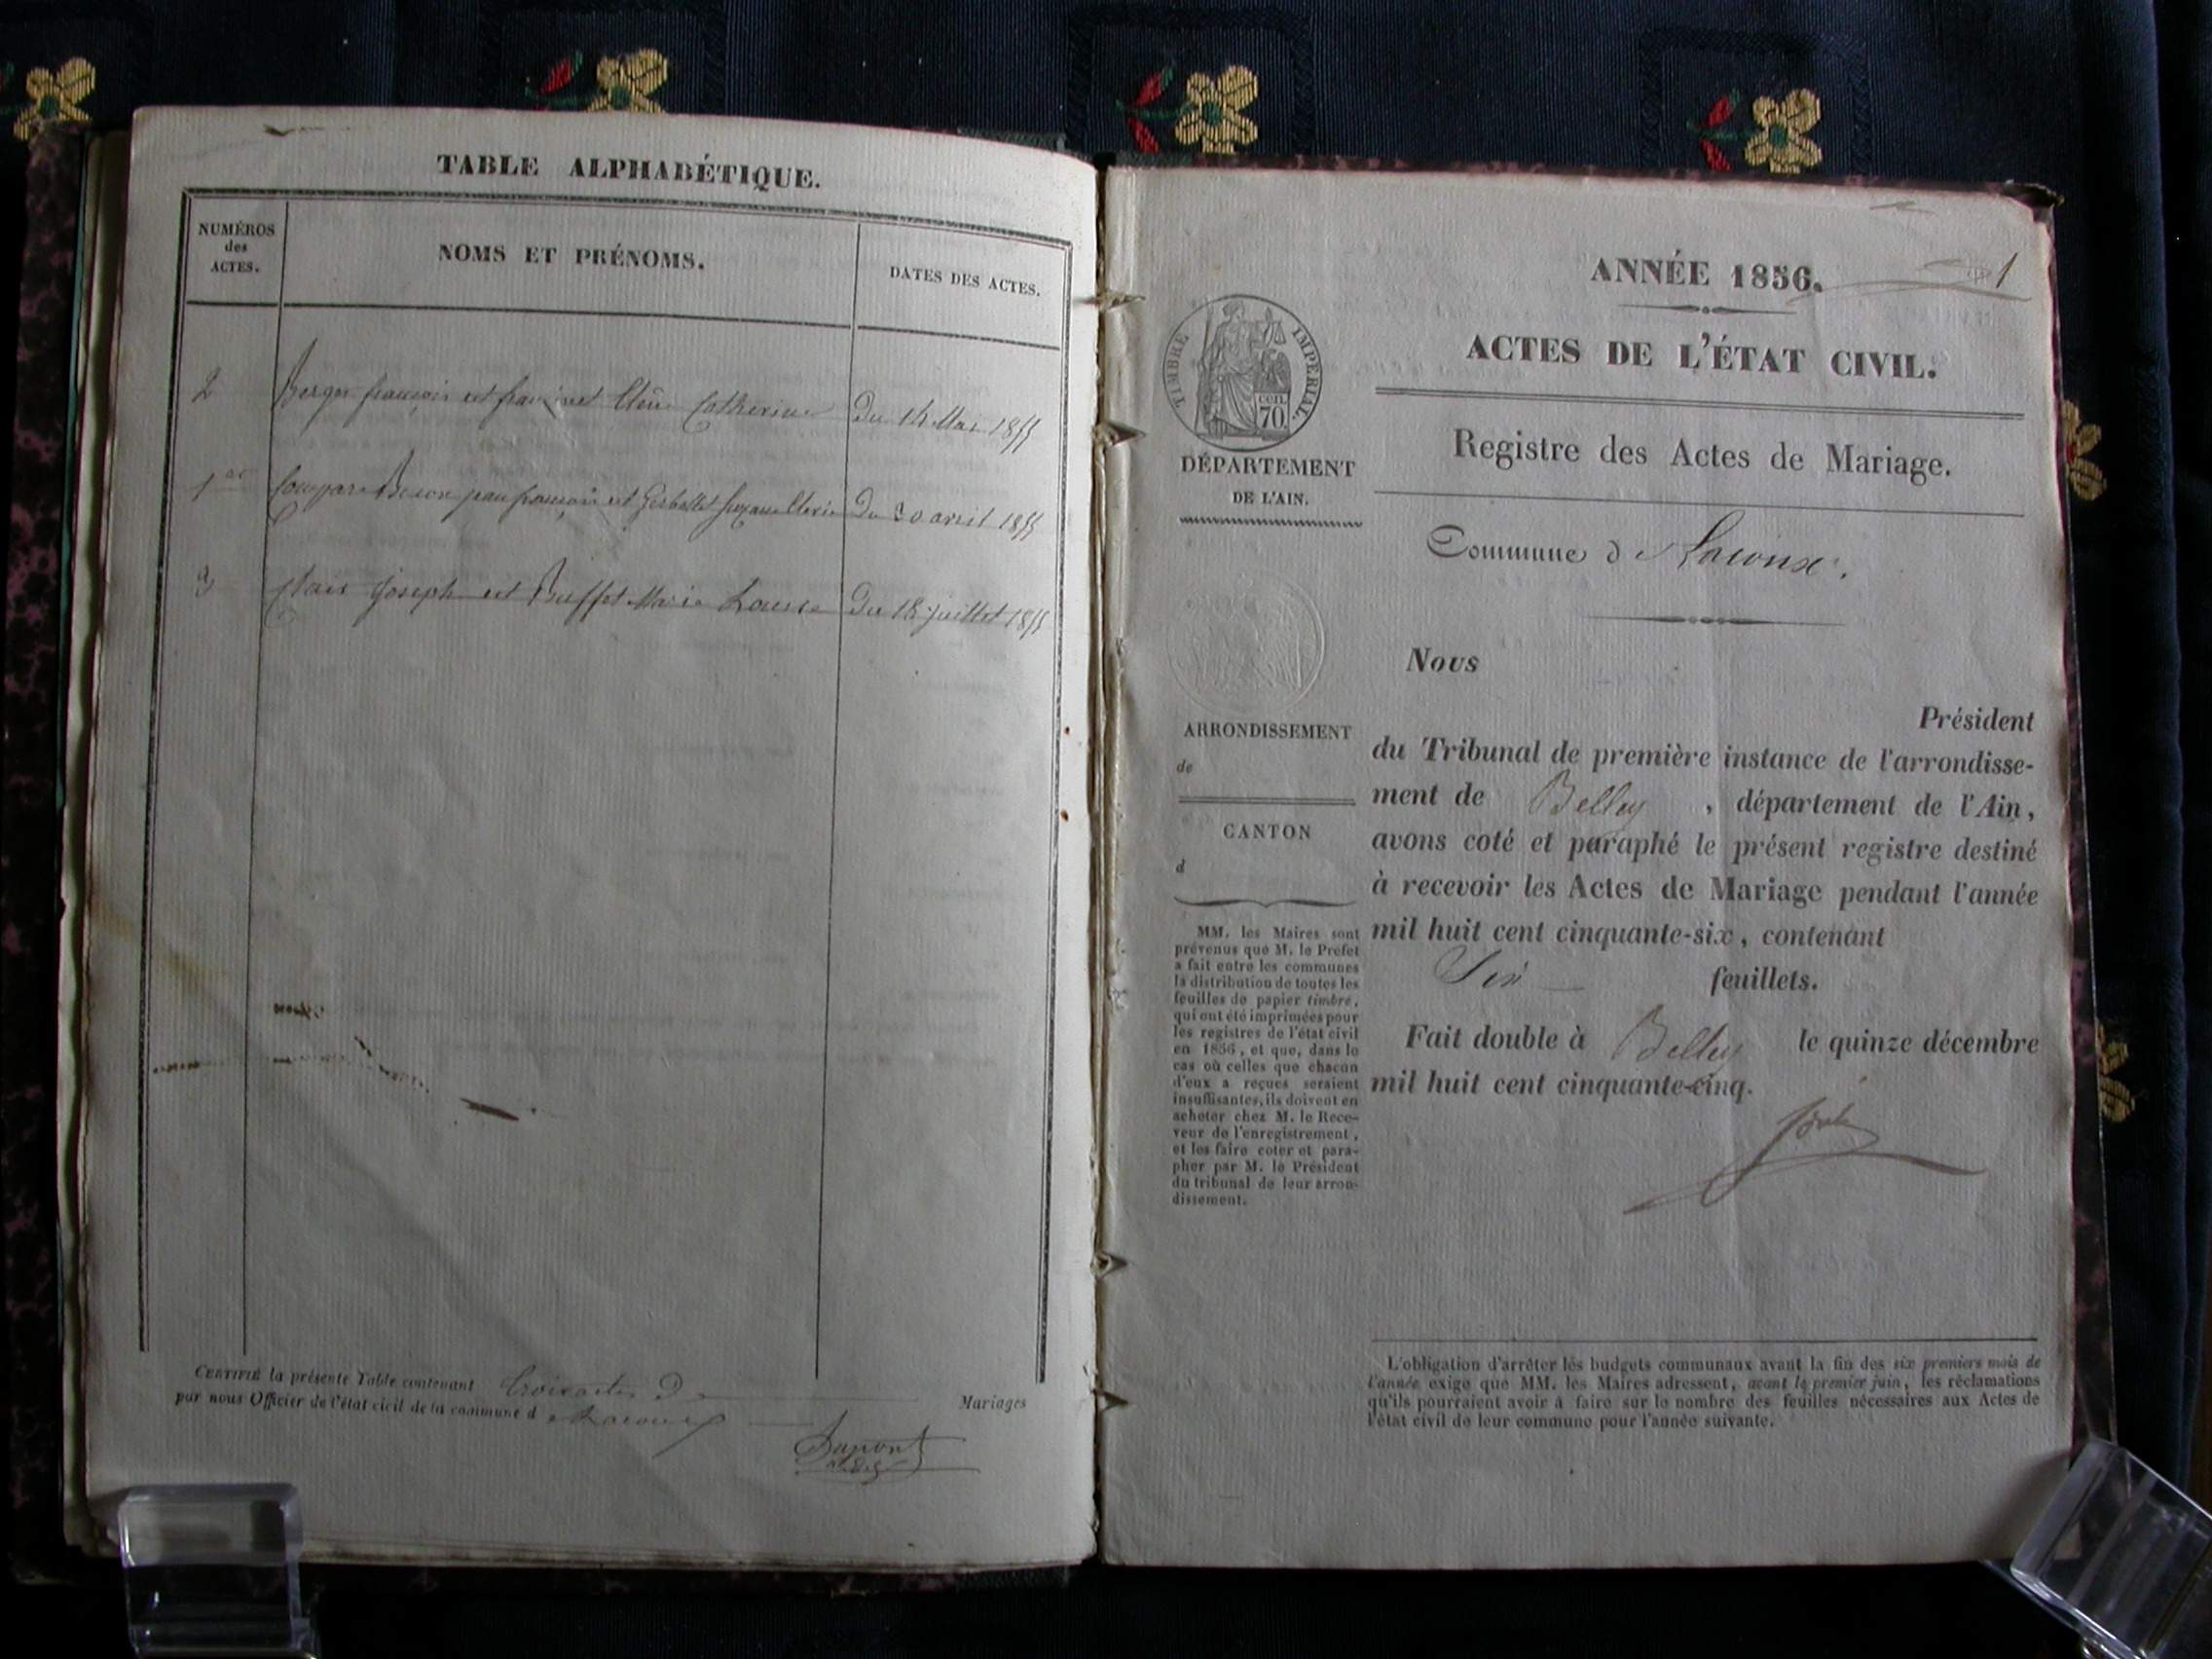 TABLE ALPHABÉTIQUE.
NUMÉROS
des
ACTES.
NOMS ET PRÉNOMS.
DATES DES ACTES.
2 Berger françois et Catherine Du 14 Mai 1855
1er jean françois et Du 30 avril 1855
3 Joseph et Buffet Marie Louise Du 18 juillet 1855
CERTIFIÉ la présente Table contenant trois actes de Mariages
par nous Officier de l'état civil de la commune d e Lacoux
Dupont
ANNÉE 1856.
1
ACTES DE L'ÉTAT CIVIL.
Registre des Actes de Mariage.
Commune de Lacoux.
TIMBRE IMPÉRIAL.
CEN.
70
DÉPARTEMENT
DE L'AIN.
ARRONDISSEMENT
de
CANTON
d
MM. les Maires sont
prévenus que M. le Préfet
a fait entre les communes
la distribution de toutes les
feuilles de papier timbré,
qui ont été imprimées pour
les registres de l'état civil
en 1856, et que, dans le
cas où celles que chacun
d'eux a reçues seraient
insuffisantes, ils doivent en
acheter chez M. le Rece-
veur de l'enregistrement,
et les faire coter et para-
pher par M. le Président
du tribunal de leur arron-
dissement.
Nous
Président
du Tribunal de première instance de l'arrondisse-
ment de Belley, département de l'Ain,
avons coté et paraphé le présent registre destiné
à recevoir les Actes de Mariage pendant l'année
mil huit cent cinquante-six, contenant
Six feuillets.
Fait double à Belley le quinze décembre
mil huit cent cinquante-cinq.
L'obligation d'arrêter les budgets communaux avant la fin des six premiers mois de
l'année exige que MM. les Maires adressent, avant le premier juin, les réclamations
qu'ils pourraient avoir à faire sur le nombre des feuilles nécessaires aux Actes de
l'état civil de leur commune pour l'année suivante.